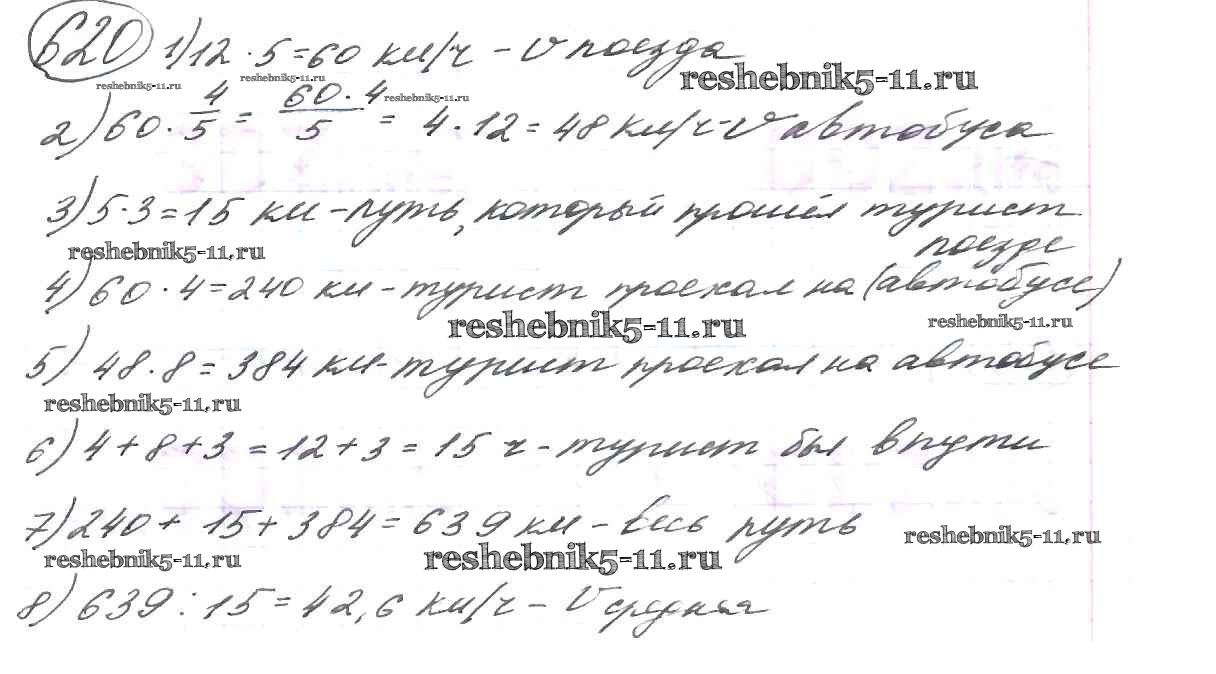 620 1) 12 · 5 = 60 км/ч - v поезда
reshebnik5-11.ru reshebnik5-11.ru reshebnik5-11.ru
2) 60 · 4/5 = 60 · 4/5 = 4 · 12 = 48 км/ч - v автобуса
reshebnik5-11.ru
3) 5 · 3 = 15 км - путь, который прошёл турист
reshebnik5-11.ru
поезде
4) 60 · 4 = 240 км - турист проехал на (автобусе)
reshebnik5-11.ru reshebnik5-11.ru
5) 48 · 8 = 384 км - турист проехал на автобусе
reshebnik5-11.ru
6) 4 + 8 + 3 = 12 + 3 = 15 ч - турист был в пути
7) 240 + 15 + 384 = 639 км - весь путь
reshebnik5-11.ru reshebnik5-11.ru reshebnik5-11.ru
8) 639 : 15 = 42,6 км/ч - v средняя